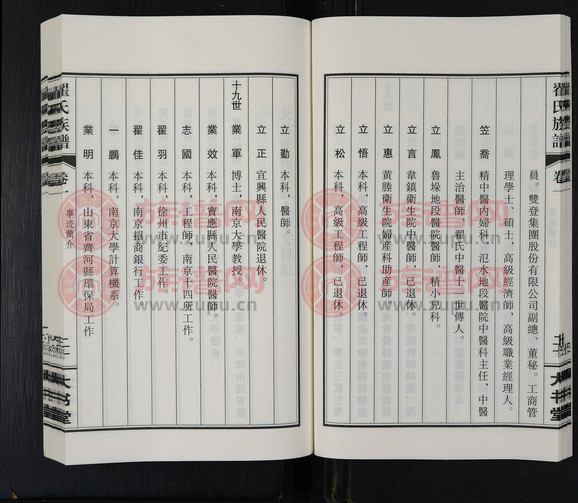 翟氏族譜
卷一
員。雙登集團股份有限公司副總、董秘。工商管
理學士、碩士，高級經濟師，高級職業經理人。
笠喬 精中醫内婦科，汜水地段醫院中醫科主任，中醫
主治醫師，翟氏中醫十二世傳人。
立鳳 魯垛地段醫院醫師，精小兒科。
立言 韋鎮衛生院中醫師，已退休。
立惠 黃塍衛生院婦產科助産師
立悟 本科，高級工程師，已退休。
立松 本科，高級工程師，已退休
大书堂
立勤 本科，醫師。
立正 宜興縣人民醫院退休
十九世
業軍 博士，南京大學教授。
業效 本科，寶應縣人民醫院醫師。
志國 本科，工程師，南京十四所工作。
翟羽 本科，徐州市紀委工作
翟佳 本科，南京招商銀行工作
一鵬 本科，南京大學計算機系。
業明 本科，山東省齊河縣環保局工作
翟氏族譜
卷一
事迹簡介
大书堂
族谱网
www.zupu.cn